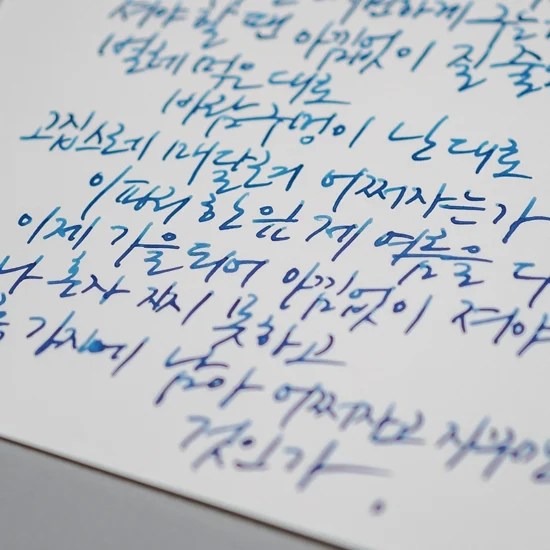 하게 구는
져야 할 땐 아낌없이 질 줄
벌레 먹은 대로
바람구멍이 난 대로
고집스레 매달려 어쩌자는가
이파리 한 잎 제 여름을 다
이제 가을 되어 아낌없이 져야
나 혼자 지지 못하고
가지에 남아 어쩌자고
것인가.